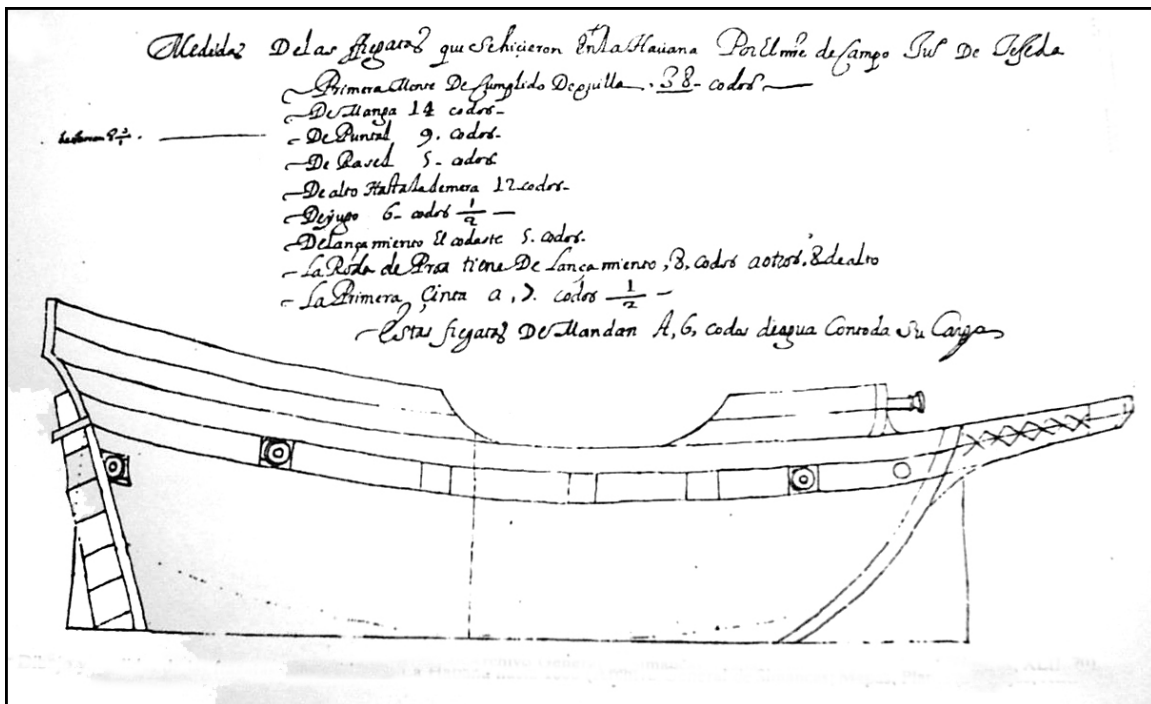 Medidas De las fregatas que se hicieron En la Havana Por El mre de Campo Juº De Tejeda
Primera Mente De Cumplido De quilla . 38 - codos
De Manga 14 codos -
De Puntal 9. codos -
De Rasel 5 - codos
De alto Hasta la demera 12 codos -
De yugo 6 - codos 1/2 —
De lançamiento El codaste 5. codos -
La Roda de Proa tiene De Lançamiento, 8, codos a otros, 8 de alto
La Primera Çinta a, 7. codos 1/2 -
Estas fregatas De Mandan A, 6, codos de agua Con toda Su Carga